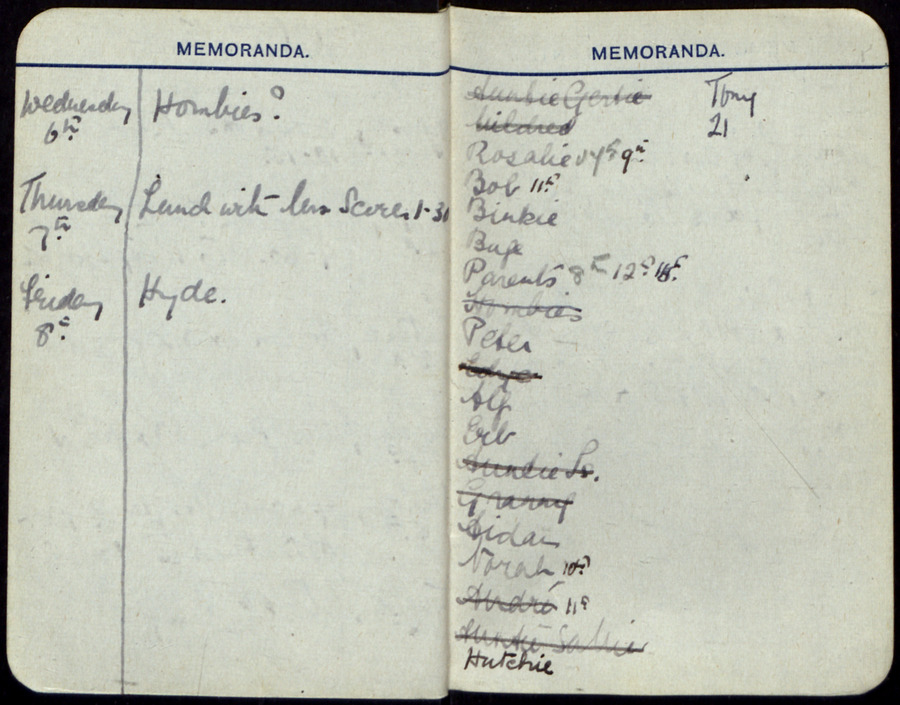 MEMORANDA.
Wednesday Hombies?
6th
Thursday Lunch with Scores 1-31
7th
Friday Hyde.
8th
MEMORANDA.
Auntie Gertie Tony
Mildred 21
Rosalie 9th
Bob 11th
Binkie
Buge
Parents 8th 12th
Hombies
Peter
Alf
Erb
Auntie
Granny
Aidan
Norah 10th
André 11th
Auntie Sallie
Hutchie